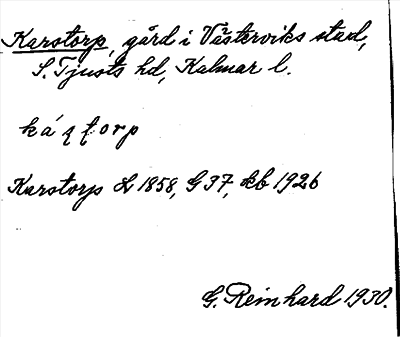 Karstorp, gård i Västerviks stad,
S. Tjusts hd, Kalmar l.
Karstorp L 1858, G 37, kb 1926
G. Reinhard 1930.